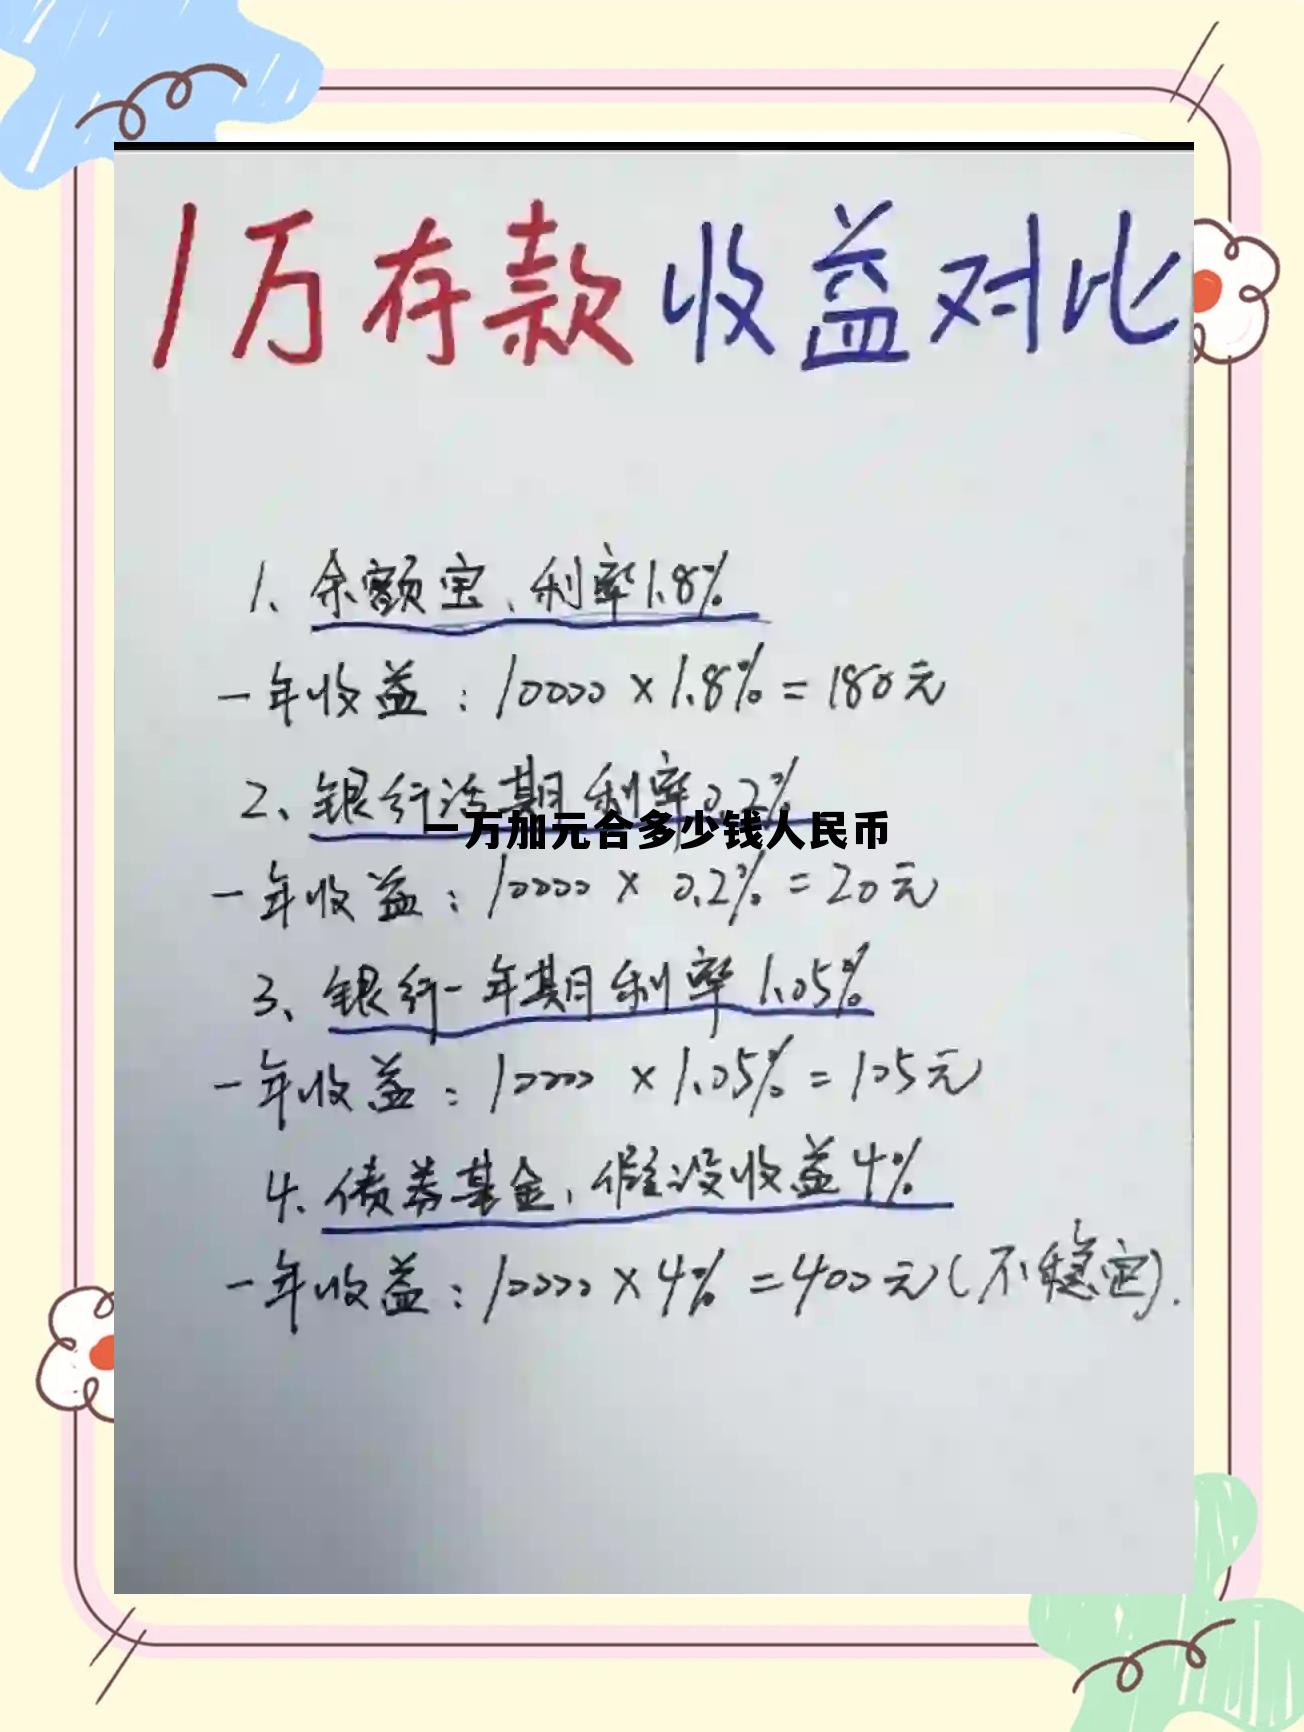 1万存款收益对比
1、余额宝、利率1.8%
一年收益：10000×1.8%=180元
2、银行活期利率0.2%
一万加元合多少钱人民币
一年收益：10000×0.2%=20元
3、银行一年期利率1.05%
一年收益：10000×1.05%=105元
4、债券基金，假设收益4%
一年收益：10000×4%=400元(不稳定).